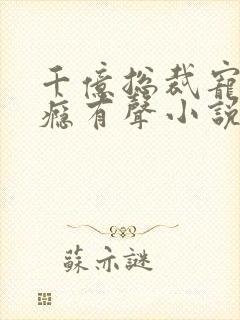 千億總裁寵
癮有聲小說
蘇亦謎